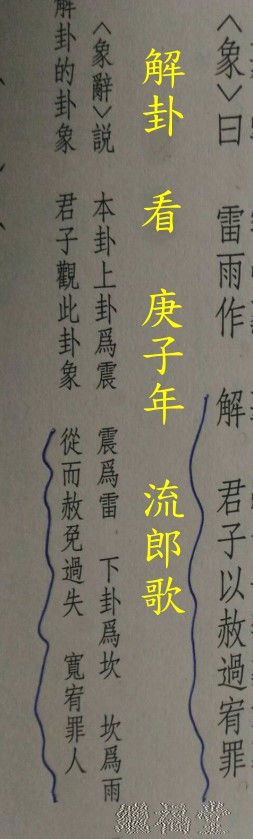 〈象〉曰 雷雨作 解 君子以赦過宥罪
解卦 看 庚子年 流郎歌
〈象辭〉説 本卦上卦爲震 震爲雷 下卦爲坎 坎爲雨
解卦的卦象 君子觀此卦象 從而赦免過失 寬宥罪人
繼福堂